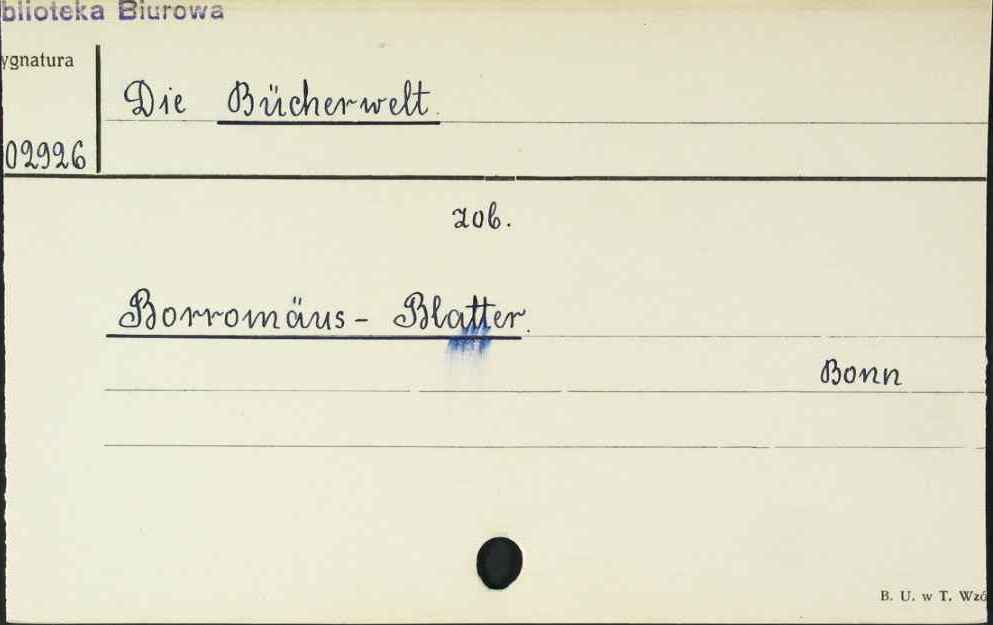 blioteka Biurowa
ygnatura
Die Bücherwelt.
02926
zob.
Borromäus - Blatter.
Bonn
B. U. w T. Wzó